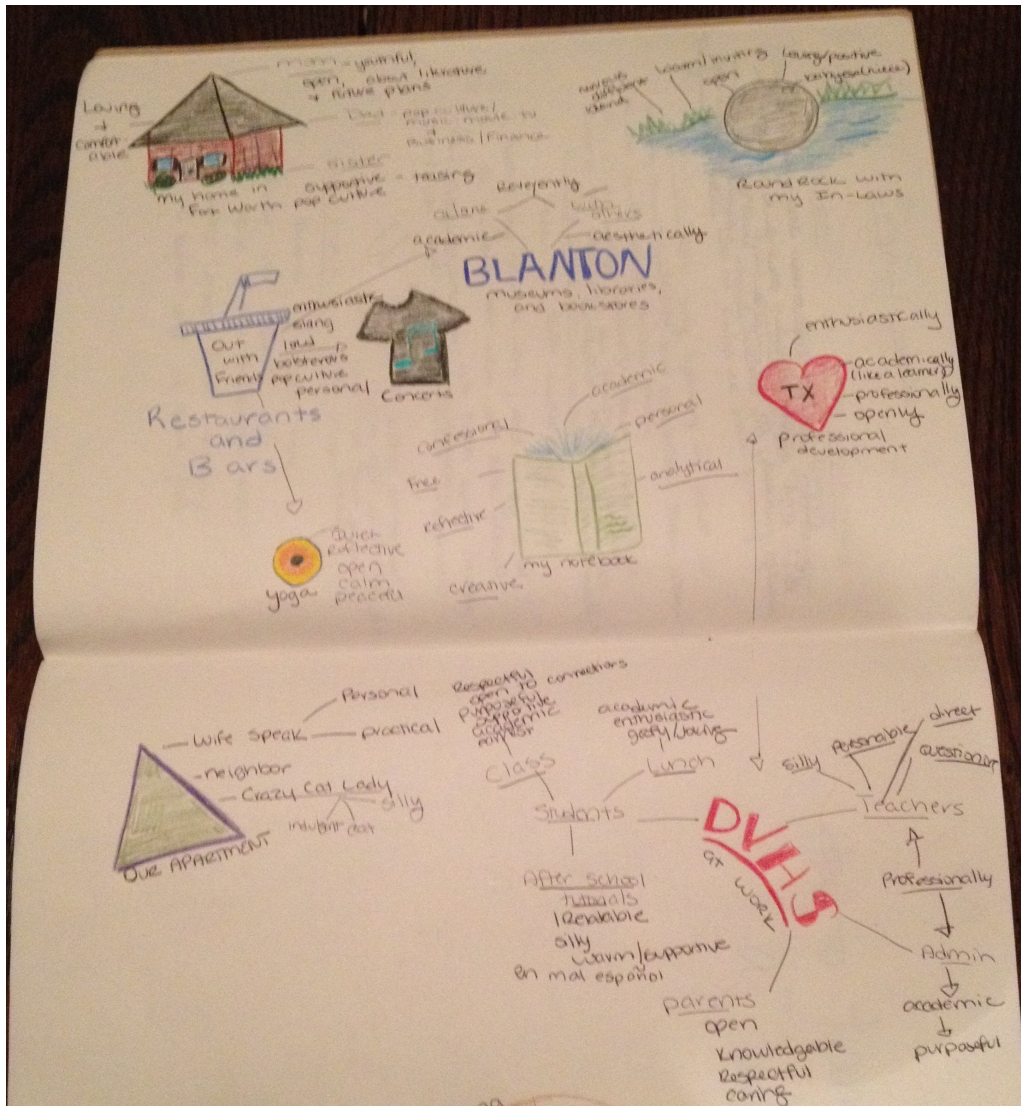 mom - youthful,
open, about literature
+ future plans
Loving
+
comfort
able
Dad - pop culture/
music movie tv
+
Business/Finance
sister
supportive - teasing
pop culture
my home in
Fort Worth
various
different
ideas
learn/inviting
open
Loving/positive
Round Rock with
my In-Laws
Reverently
alone
with
others
academic
aesthetically
BLANTON
museums, libraries,
and bookstores
enthusiastic
slang
loud
boisterous
pop culture
personal
out
with
Friends
Restaurants
and
Bars
Concerts
enthusiastically
TX
academically
(like a learner)
professionally
openly
professional
development
academic
personal
confessional
Free
analytical
reflective
creative
my notebook
Quick
Reflective
open
calm
peaceful
yoga
Personal
Wife Speak
practical
neighbor
Crazy Cat Lady
silly
indulgent
cat
OUR APARTMENT
Respectful
open to connections
purposeful
supportive
academic
earnest
Class
academic
enthusiastic
goofy/joking
Lunch
Students
After School
tutorials
Relatable
silly
warm/supportive
en mal español
DVHS
at work
silly
Personable
direct
questioning
Teachers
Professionally
Admin
academic
purposeful
parents
open
Knowledgable
Respectful
caring